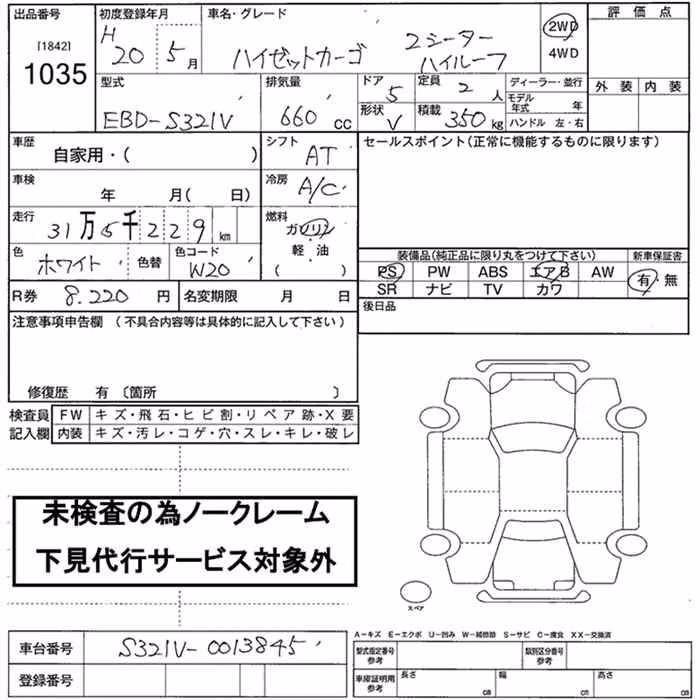 出品番号 [1842] 1035
初度登録年月 H 20 5月
車名・グレード ハイゼットカーゴ 2シーター ハイルーフ
2WD
4WD
評価点
外装 内装
型式 EBD-S321V
排気量 660 cc
ドア 5
定員 2 人
形状 V
積載 350 kg
ディーラー・並行
モデル年式 年
ハンドル 左・右
車歴 自家用・( )
シフト AT
セールスポイント(正常に機能するものに限ります)
車検 年 月( 日)
冷房 A/C
走行 31万5千229km
燃料 ガソリン
軽油
( )
色 ホワイト 色替
色コード W20
装備品(純正品に限り丸をつけて下さい)
新車保証書
PS PW ABS エアB AW
SR ナビ TV カワ
有・無
R券 8.220 円
名変期限 月 日
後日品
注意事項申告欄 (不具合内容等は具体的に記入して下さい)
修復歴 有 〔箇所 〕
検査員記入欄
FW キズ・飛石・ヒビ割・リペア跡・X要
内装 キズ・汚レ・コゲ・穴・スレ・キレ・破レ
未検査の為ノークレーム
下見代行サービス対象外
スペア
A-キズ E-エクボ U-凹み W-補修跡 S-サビ C-腐食 XX-交換済
車台番号 S321V-0013845
登録番号
型式指定番号 参考
類別区分番号 参考
車庫証明用 参考
長さ cm
幅 cm
高さ cm